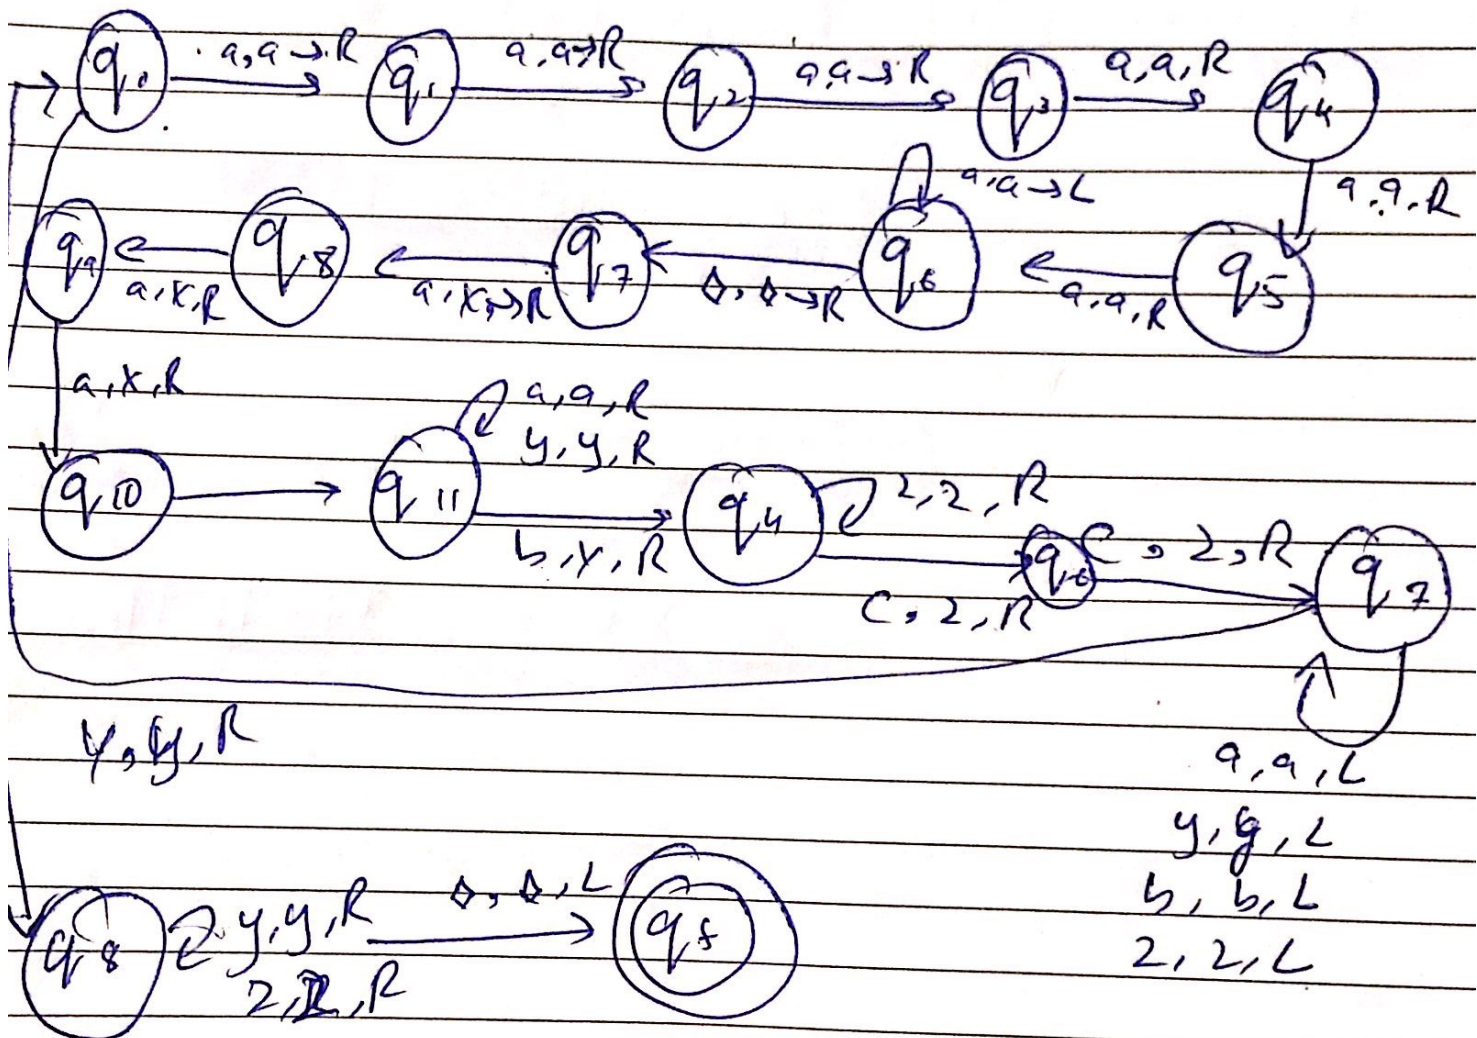 q0 a,a→R q1 a,a→R q2 a,a→R q3 a,a,R q4
a,a→L a,a,R
q9 a,x,R q8 a,x,→R q7 Δ,Δ→R q6 a,a,R q5
a,x,R
a,a,R
y,y,R
q10 q11 b,y,R q4 2,2,R
C,2,R q6 C,2,R q7
y,y,R
a,a,L
y,y,L
b,b,L
2,2,L
q8 y,y,R Δ,Δ,L qf
2,2,R